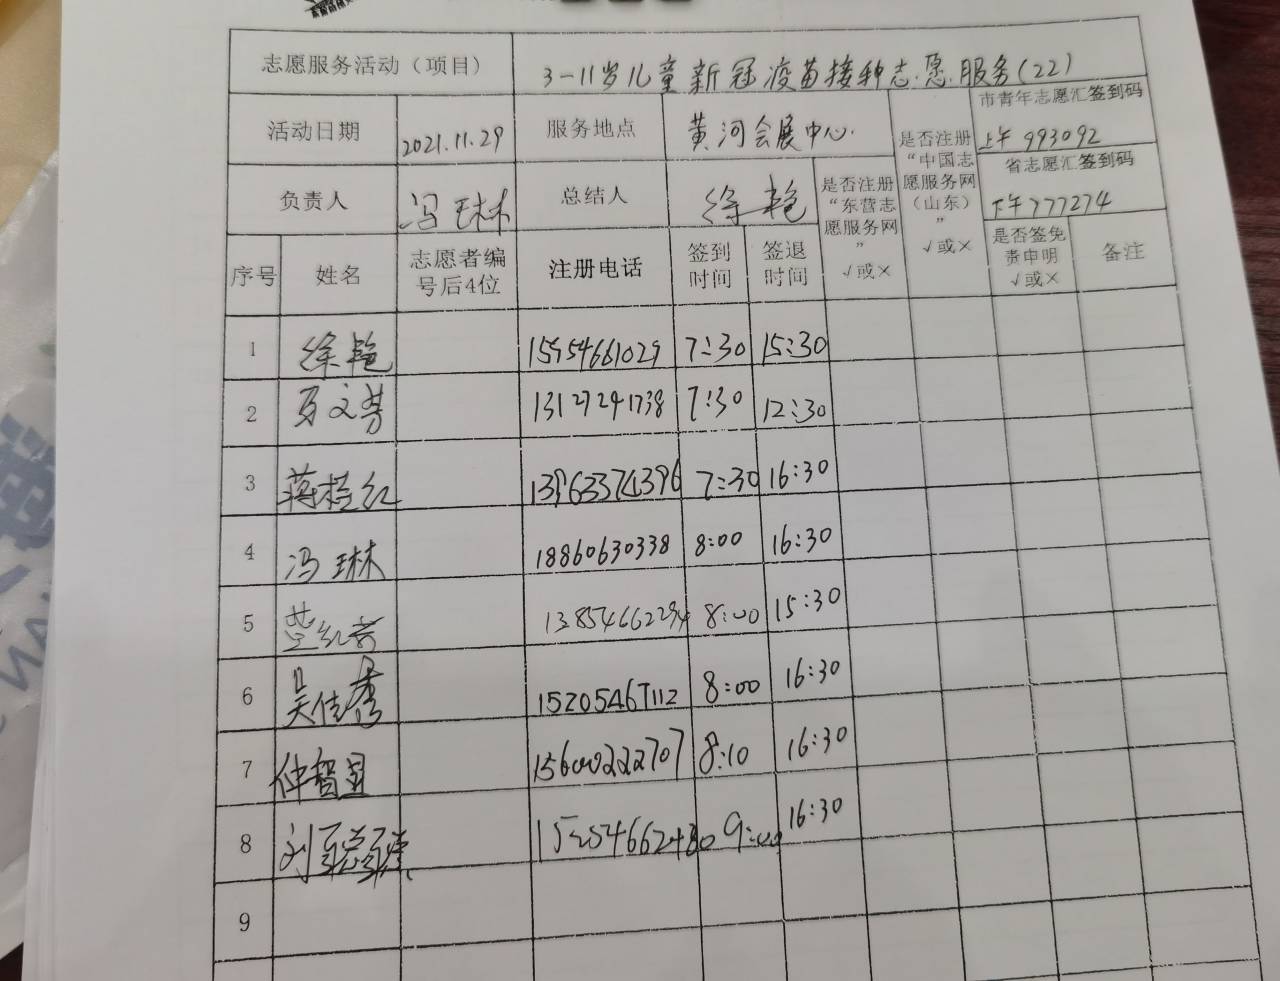 志愿服务活动（项目） 3-11岁儿童新冠疫苗接种志愿服务(22)
活动日期 2021.11.29 服务地点 黄河会展中心.
是否注册“中国志愿服务网（山东）” √或×
市青年志愿汇签到码
上午 993092
省志愿汇签到码
下午777274
负责人 冯琳 总结人 徐艳
是否注册“东营志愿服务网” √或×
序号 姓名 志愿者编号后4位 注册电话 签到时间 签退时间 是否签免责申明 √或× 备注
1 徐艳 15954661029 7:30 15:30
2 万文芳 13127241738 7:30 12:30
3 蒋桂红 13963374396 7:30 16:30
4 冯琳 18860630338 8:00 16:30
5 13854662294 8:00 15:30
6 吴佳秀 15205467112 8:00 16:30
7 仲智国 15600222707 8:10 16:30
8 刘聪聪 15254662480 9:00 16:30
9